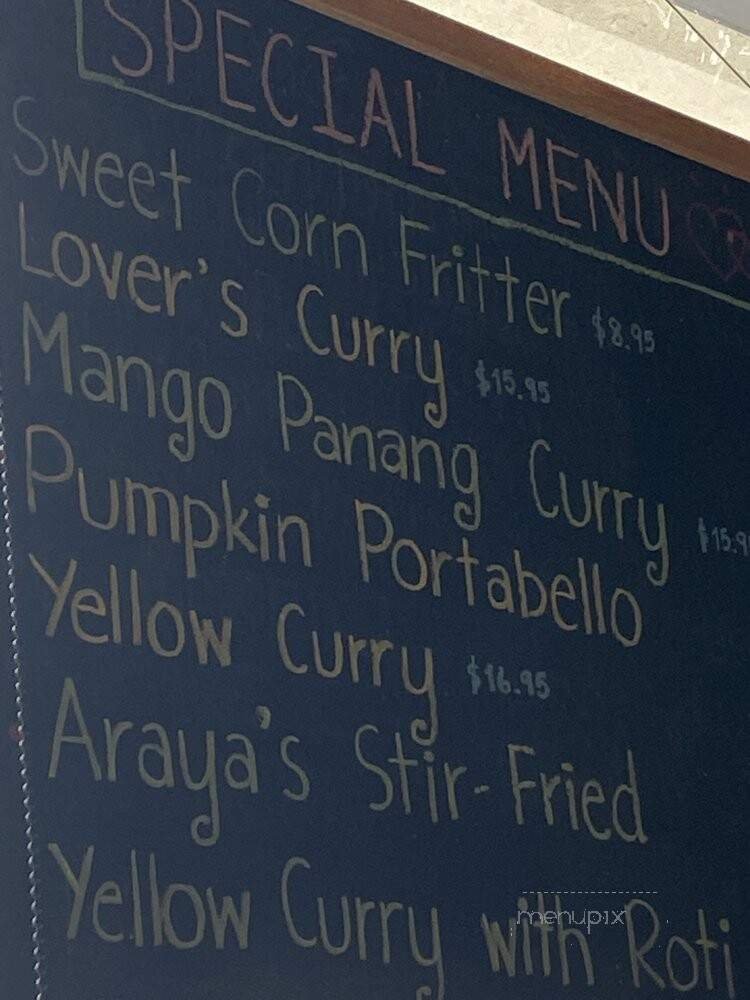 SPECIAL MENU
Sweet Corn Fritter $8.95
Lover's Curry $15.95
Mango Panang Curry
Pumpkin Portabello
Yellow Curry $16.95
Araya's Stir-Fried
Yellow Curry with Roti
menupix